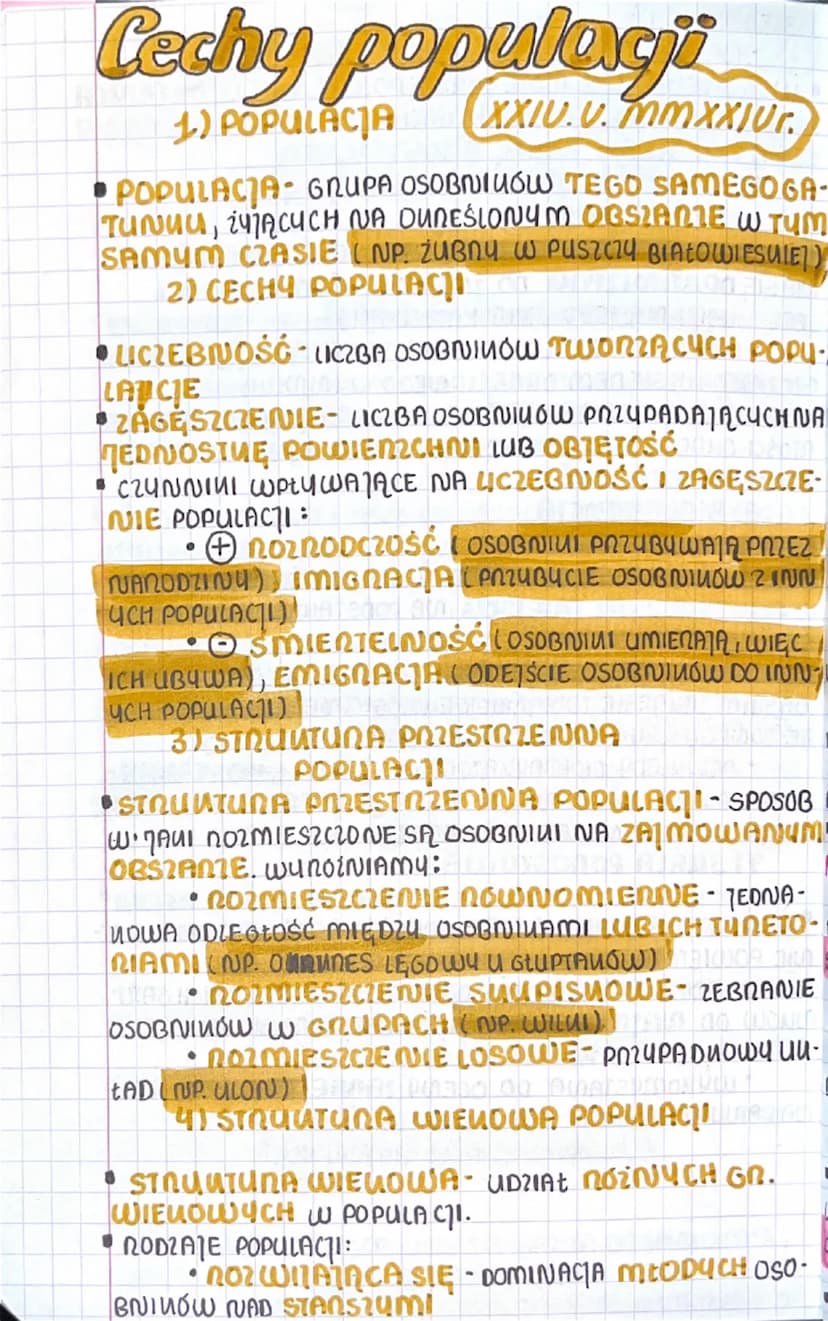 Cechy populacji
1.) POPULACJA
XXIV. V. MMXXIVr.
• POPULACJA- GRUPA OSOBNIKÓW TEGO SAMEGO GA-
TUNKU, ŻYJĄCYCH NA OKREŚLONYM OBSZARZE W TYM
SAMYM CZASIE (NP. ŻUBRY W PUSZCZY BIAŁOWIESKIEJ)
2) CECHY POPULACJI
• LICZEBNOŚĆ - LICZBA OSOBNIKÓW TWORZĄCYCH POPU-
LACJE
• ZAGĘSZCZENIE- LICZBA OSOBNIKÓW PRZYPADAJĄCYCH NA
JEDNOSTKĘ POWIERZCHNI LUB OBJĘTOŚĆ
• CZYNNIKI WPŁYWAJĄCE NA LICZEBNOŚĆ I ZAGĘSZCZE-
NIE POPULACJI:
• + ROZRODCZOŚĆ (OSOBNIKI PRZYBYWAJĄ PRZEZ
NARODZINY) IMIGRACJA (PRZYBYCIE OSOBNIKÓW Z INN
YCH POPULACJI)
• - ŚMIERTELNOŚĆ (OSOBNIKI UMIERAJĄ, WIĘC
ICH UBYWA), EMIGRACJA (ODEJŚCIE OSOBNIKÓW DO INN-
YCH POPULACJI)
3) STRUKTURA PRZESTRZENNA
POPULACJI
• STRUKTURA PRZESTRZENNA POPULACJI - SPOSÓB
W JAKI ROZMIESZCZONE SĄ OSOBNIKI NA ZAJMOWANYM
OBSZARZE. WYRÓŻNIAMY:
• ROZMIESZCZENIE RÓWNOMIERNE - JEDNA-
KOWA ODLEGŁOŚĆ MIĘDZY OSOBNIKAMI LUB ICH TYRETO-
RIAMI (NP. OKRES LĘGOWY U GŁUPTAKÓW)
• ROZMIESZCZENIE SKUPISKOWE- ZEBRANIE
OSOBNIKÓW W GRUPACH (NP. WILKI)
• ROZMIESZCZENIE LOSOWE- PRZYPADKOWY UK-
ŁAD (NP. KLON)
4) STRUKTURA WIEKOWA POPULACJI
• STRUKTURA WIEKOWA- UDZIAŁ RÓŻNYCH GR.
WIEKOWYCH W POPULACJI.
• RODZAJE POPULACJI:
• ROZWIJAJĄCA SIĘ - DOMINACJA MŁODYCH OSO-
BNIKÓW NAD STARSZYMI